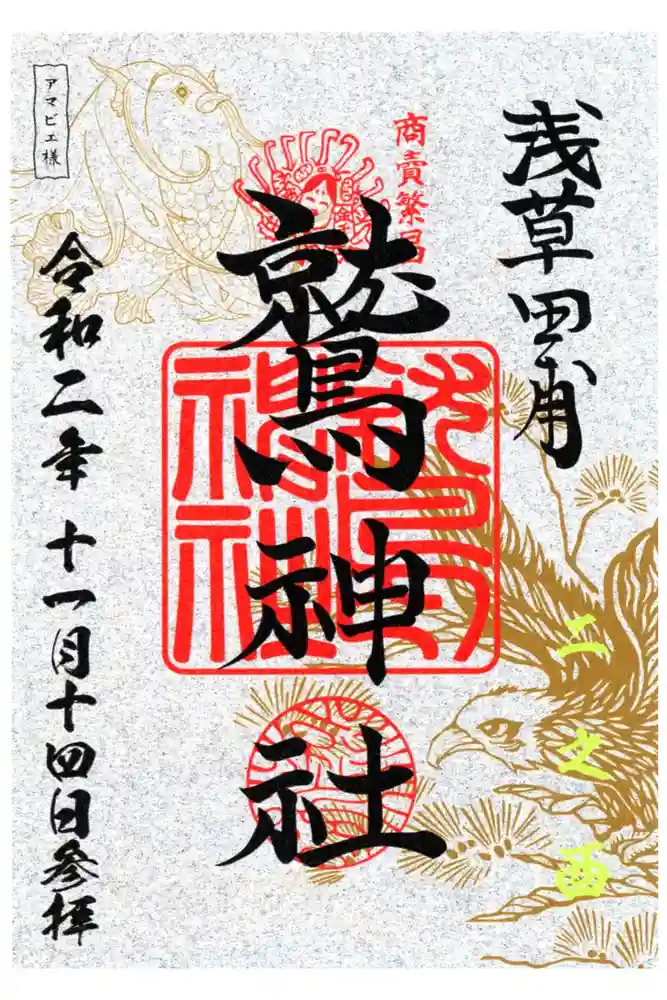 浅草田甫
商賣繁昌
鷲神社
二之酉
アマビエ様
令和二年十一月十四日参拝